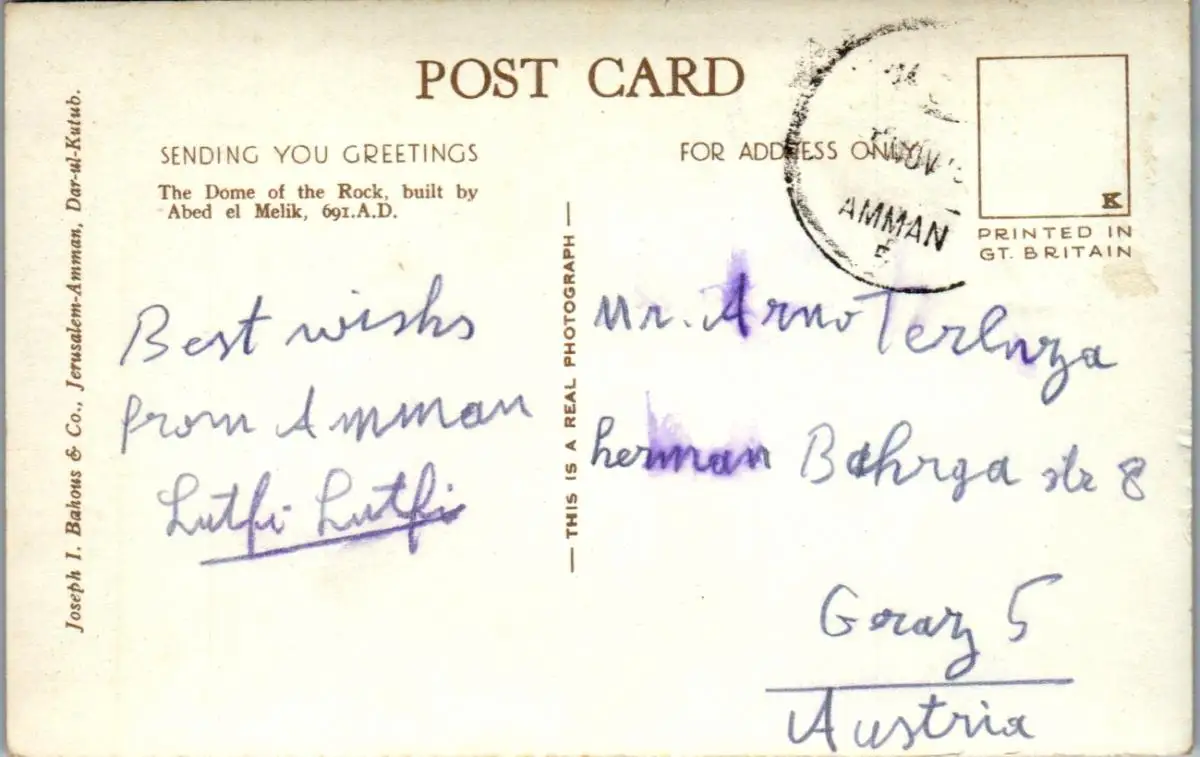 POST CARD
SENDING YOU GREETINGS
The Dome of the Rock, built by
Abed el Melik, 691.A.D.
Joseph I. Bahous & Co., Jerusalem-Amman, Dar-ul-Kutub.
Best wishs
from Amman
Lutfi Lutfi
— THIS IS A REAL PHOTOGRAPH —
FOR ADDRESS ONLY
NOV
AMMAN
5
K
PRINTED IN
GT. BRITAIN
Mr. Arno
herman str 8
Graz 5
Austria